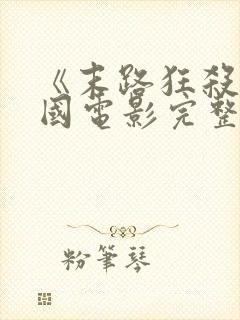 《末路狂殺
國電影完整
粉筆琴